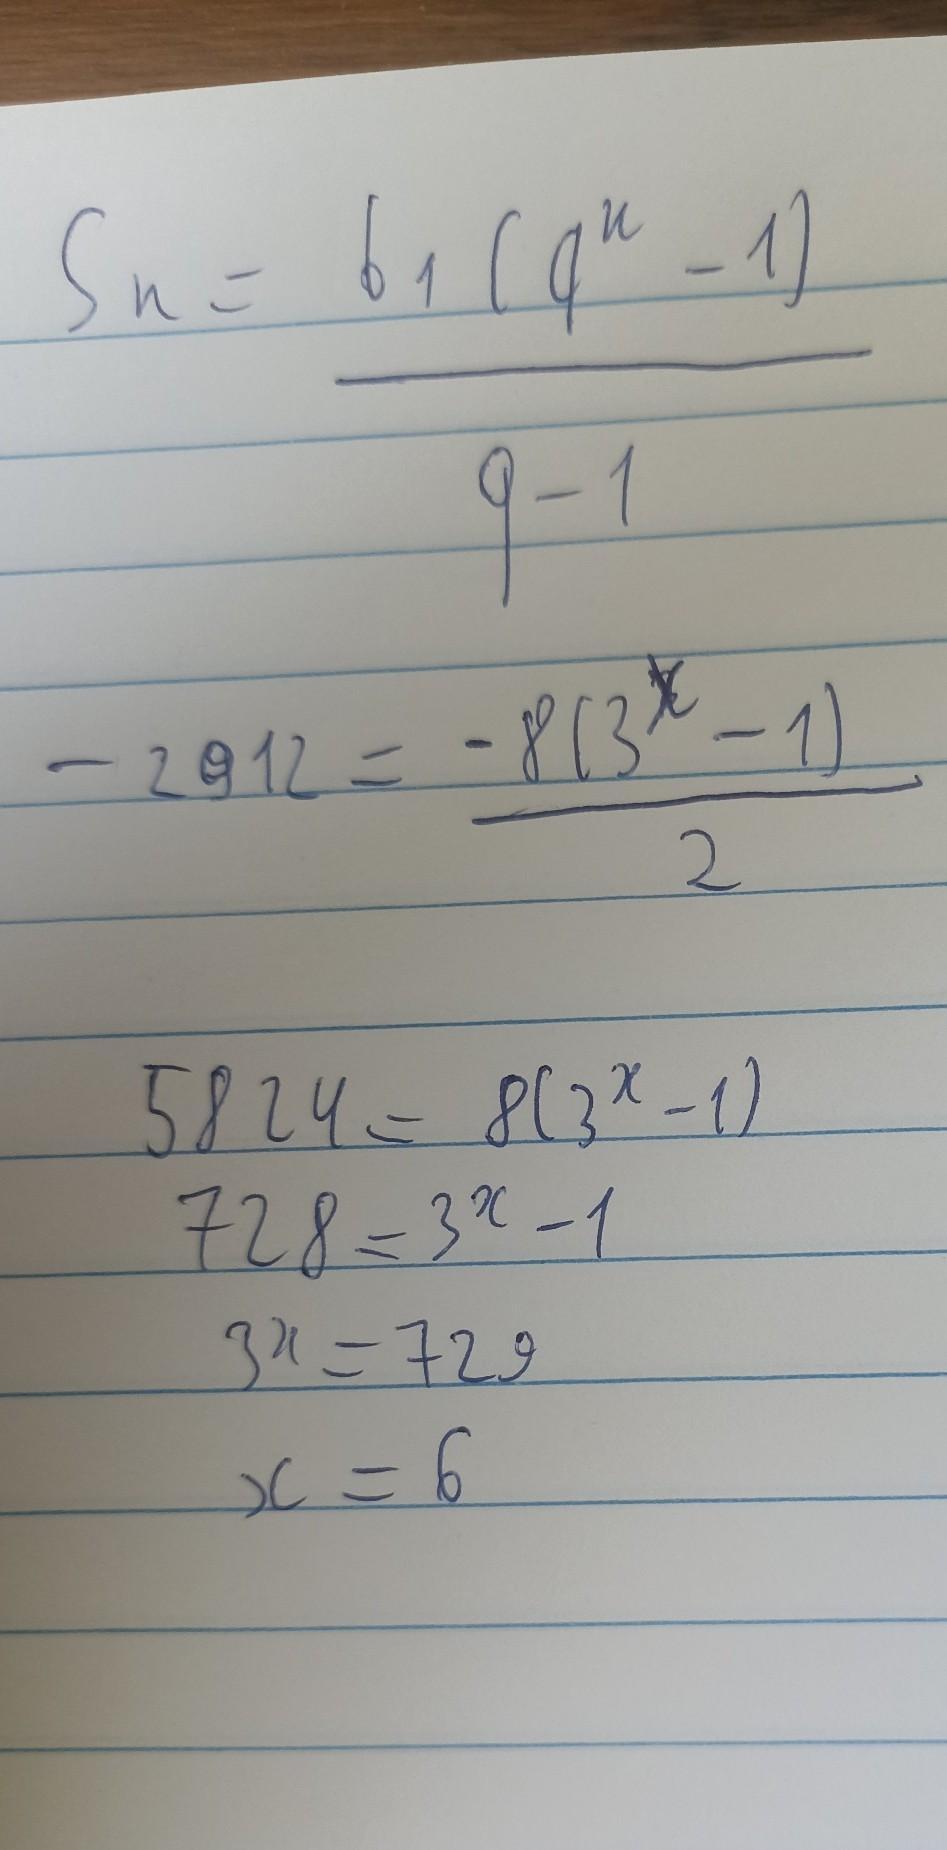 Sn = b1(q^n - 1)
q - 1
-2912 = -8(3^x - 1)
2
5824 = 8(3^x - 1)
728 = 3^x - 1
3^x = 729
x = 6